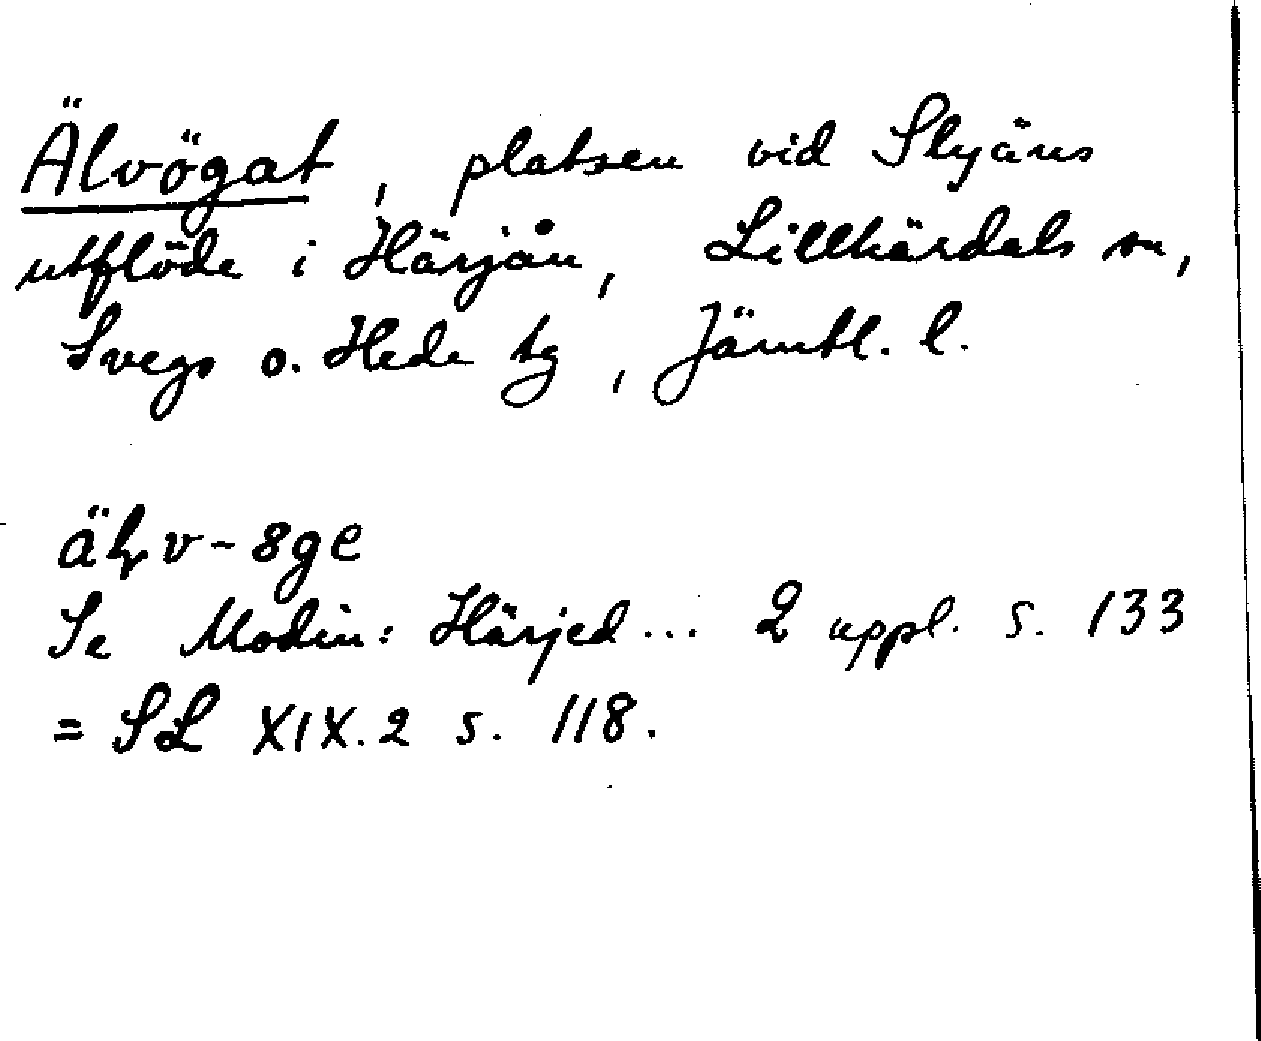 Älvögat, platsen vid Slyäns
utflöde i Härjån, Lillhärdals sn,
Svegs o. Hede tg, Jämtl. l.
Se Modin: Härjed... 2 uppl. s. 133
= SL XIX.2 s. 118.